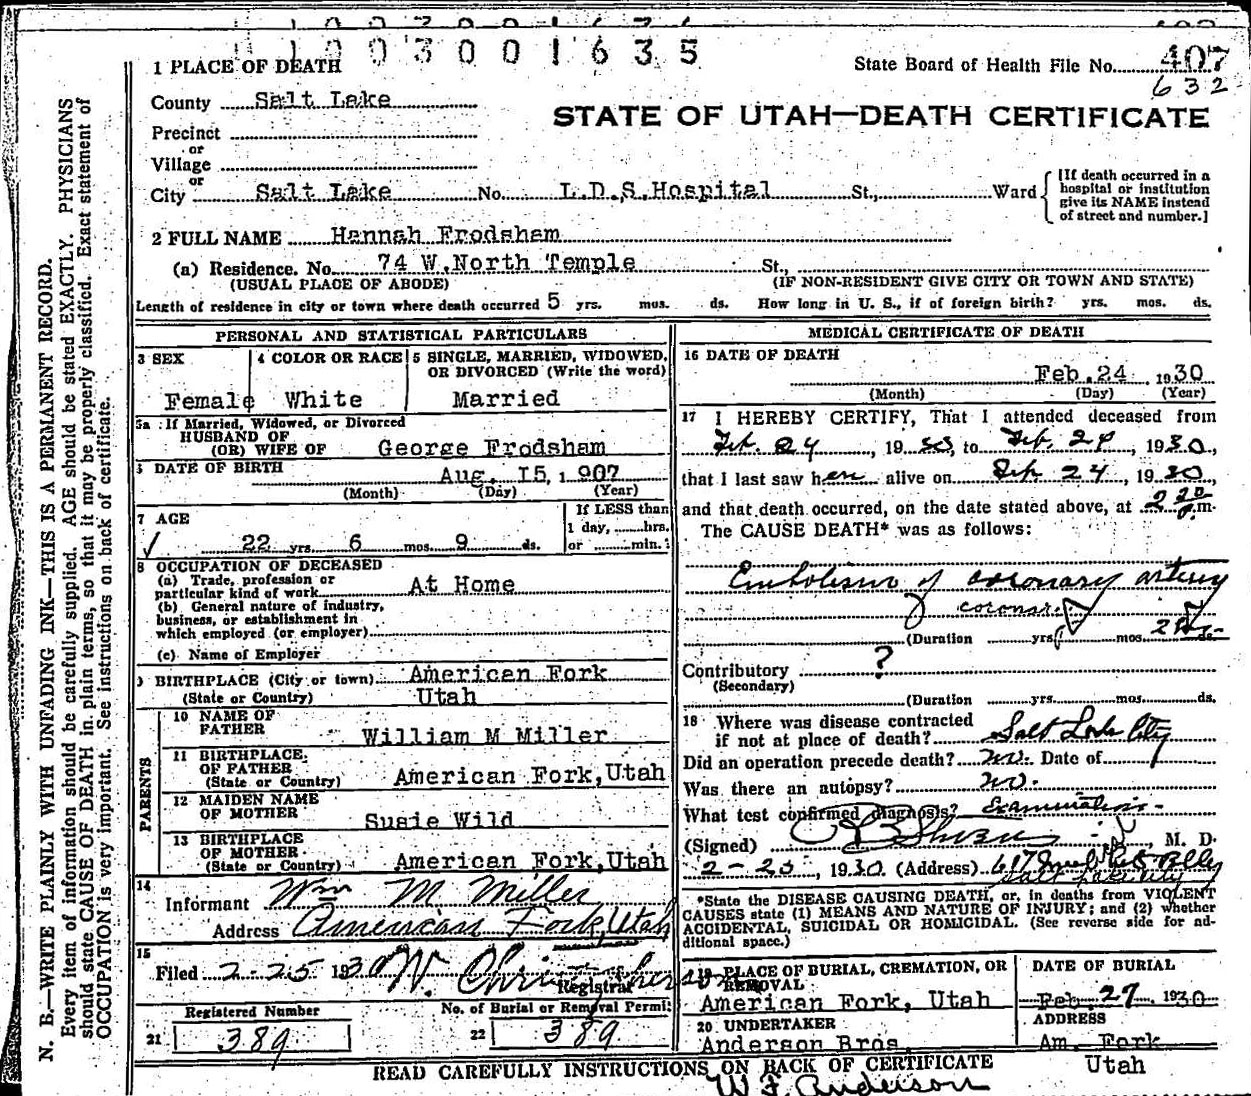 1003001635
1 PLACE OF DEATH
State Board of Health File No. 407
632
County Salt Lake
STATE OF UTAH—DEATH CERTIFICATE
Precinct
or
Village
or
City Salt Lake No. L.D.S.Hospital St., Ward
[If death occurred in a
hospital or institution
give its NAME instead
of street and number.]
2 FULL NAME Hannah Frodsham
(a) Residence. No. 74 W.North Temple St.,
(USUAL PLACE OF ABODE) (IF NON-RESIDENT GIVE CITY OR TOWN AND STATE)
Length of residence in city or town where death occurred 5 yrs. mos. ds. How long in U. S., if of foreign birth? yrs. mos. ds.
PERSONAL AND STATISTICAL PARTICULARS
3 SEX 4 COLOR OR RACE 5 SINGLE, MARRIED, WIDOWED,
OR DIVORCED (Write the word)
Female White Married
5a If Married, Widowed, or Divorced
HUSBAND OF
(OR) WIFE OF George Frodsham
DATE OF BIRTH Aug. 15, 1907
(Month) (Day) (Year)
7 AGE If LESS than
1 day, hrs.
22 yrs. 6 mos. 9 ds. or min.
8 OCCUPATION OF DECEASED
(a) Trade, profession or
particular kind of work At Home
(b) General nature of industry,
business, or establishment in
which employed (or employer)
(c) Name of Employer
9 BIRTHPLACE (City or town) American Fork
(State or Country) Utah
PARENTS
10 NAME OF
FATHER William M Miller
11 BIRTHPLACE
OF FATHER
(State or Country) American Fork,Utah
12 MAIDEN NAME
OF MOTHER Susie Wild
13 BIRTHPLACE
OF MOTHER
(State or Country) American Fork,Utah
14
Informant Wm M. Miller
Address American Fork, Utah
15
Filed 2-25 1930 W. Christopherson
Registrar
Registered Number No. of Burial or Removal Permit
21 389 22 389
MEDICAL CERTIFICATE OF DEATH
16 DATE OF DEATH
Feb.24 1930
(Month) (Day) (Year)
17 I HEREBY CERTIFY, That I attended deceased from
Feb. 24, 1930, to Feb. 24, 1930,
that I last saw her alive on Feb 24, 1930
and that death occurred, on the date stated above, at 2 20 P.m.
The CAUSE DEATH* was as follows:
Embolism of coronary artery
coronar
(Duration yrs. mos. ds.
Contributory ?
(Secondary)
(Duration yrs. mos. ds.
18 Where was disease contracted
if not at place of death? Salt Lake City
Did an operation precede death? no. Date of
Was there an autopsy? no.
What test confirmed diagnosis? Examination
(Signed) M. D.
2-25, 1930. (Address) 617
Salt Lake City
*State the DISEASE CAUSING DEATH, or, in deaths from VIOLENT
CAUSES state (1) MEANS AND NATURE OF INJURY; and (2) whether
ACCIDENTAL, SUICIDAL OR HOMICIDAL. (See reverse side for ad-
ditional space.)
19 PLACE OF BURIAL, CREMATION, OR
REMOVAL
American Fork, Utah
DATE OF BURIAL
Feb 27, 1930
20 UNDERTAKER
Anderson Bros
ADDRESS
Am. Fork
Utah
READ CAREFULLY INSTRUCTIONS ON BACK OF CERTIFICATE
W F. Anderson
N. B.—WRITE PLAINLY WITH UNFADING INK—THIS IS A PERMANENT RECORD.
Every item of information should be carefully supplied. AGE should be stated EXACTLY. PHYSICIANS
should state CAUSE OF DEATH in plain terms, so that it may be properly classified. Exact statement of
OCCUPATION is very important. See instructions on back of certificate.